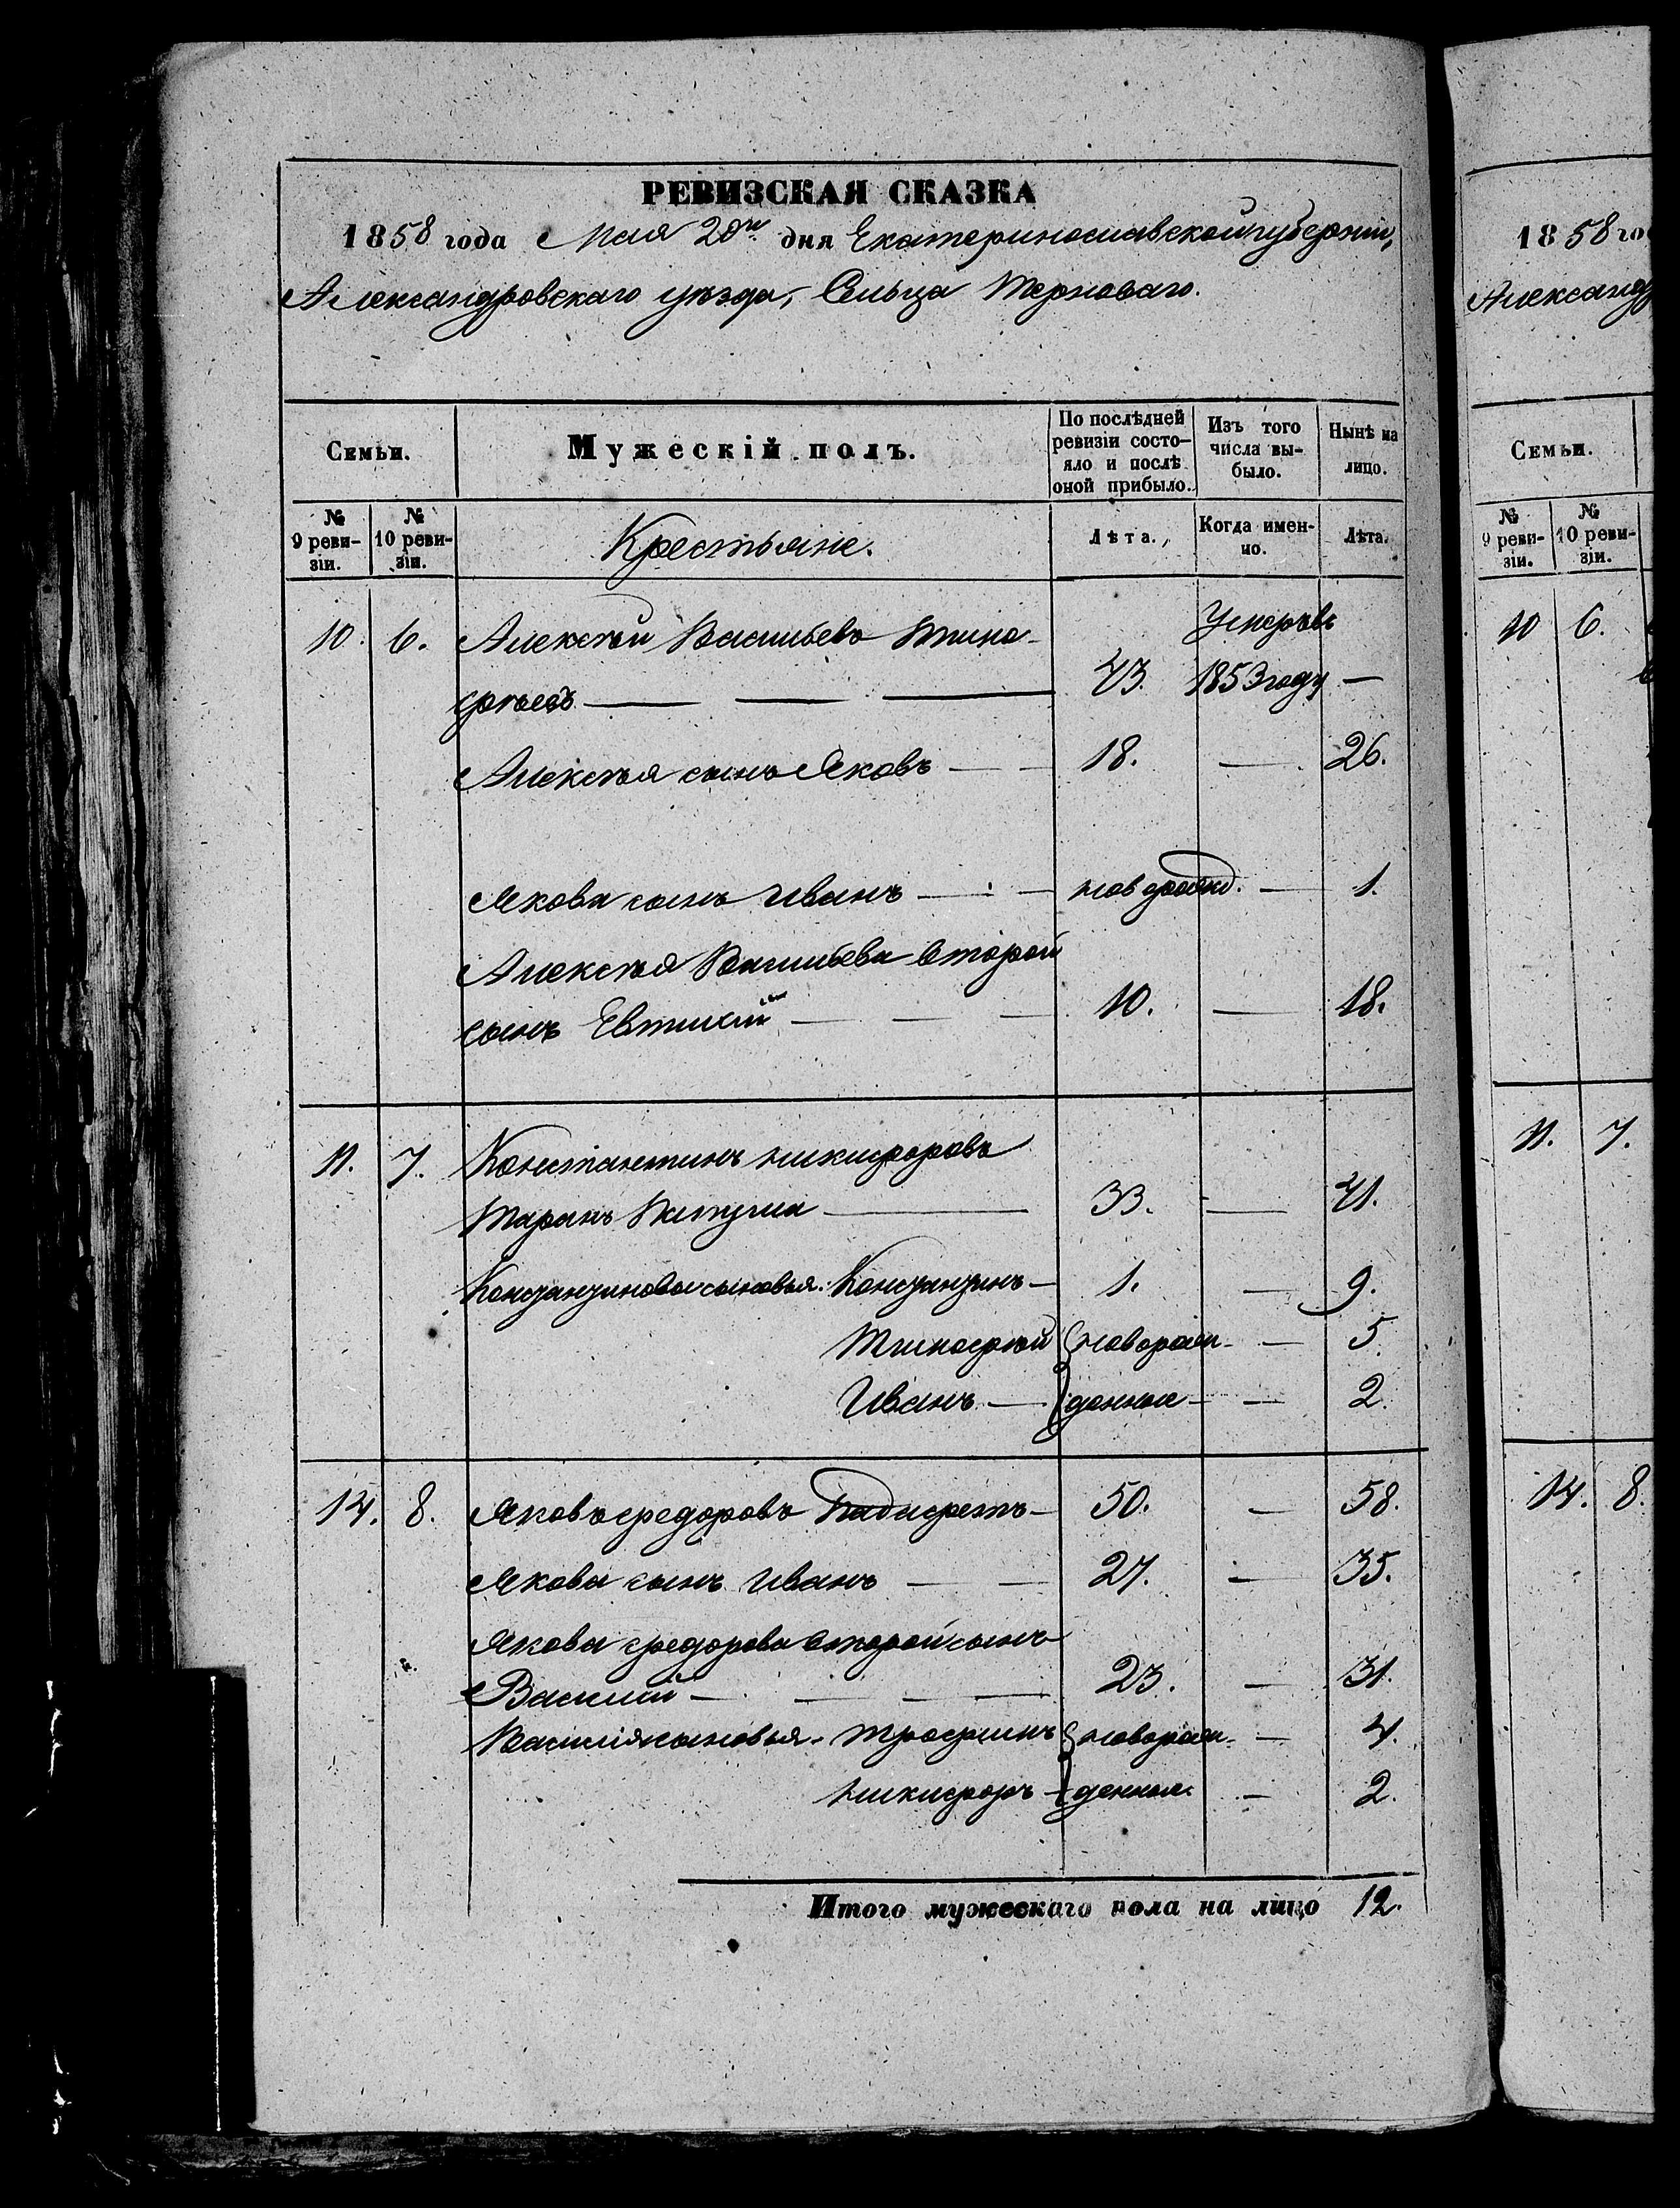 РЕВИЗСКАЯ СКАЗКА
1858 года Мая 20го дня Екатеринославской губернии,
Александровскаго уѣзда, Сельца Терноваго.
Семьи. Мужескій полъ. По послѣдней ревизіи состо-яло и послѣ оной прибыло. Изъ того числа вы-было. Нынѣ на лицо.
№ 9 реви-зіи. № 10 реви-зіи. Крестьяне. Лѣта. Когда имен-но. Лѣта.
10. 6. Алексѣй Васильевъ Тимо- Умеръ въ
фѣевъ 43. 1853 году —
Алексѣя сынъ Яковъ — 18. — 26.
Якова сынъ Иванъ — новорожд. — 1.
Алексѣя Васильева второй
сынъ Евтихій — 10. — 18.
11. 7. Константинъ Никифоровъ
Таранъ 33. — 41.
Константинова сыновья: Константинъ — 1. — 9.
Тимофѣй новорож- — 5.
Иванъ — денные — 2.
14. 8. Яковъ Федоровъ 50. — 58.
Якова сынъ Иванъ — 27. — 35.
Якова Федорова второй сынъ
Василий — 23. — 31.
Василія сыновья: Трофимъ новорож- — 4.
Никифоръ — денные — 2.
Итого мужескаго пола на лицо 12.
1858 го
Александ
Семьи.
№ 9 реви-зіи. № 10 реви-зіи.
10 6.
11. 7.
14. 8.